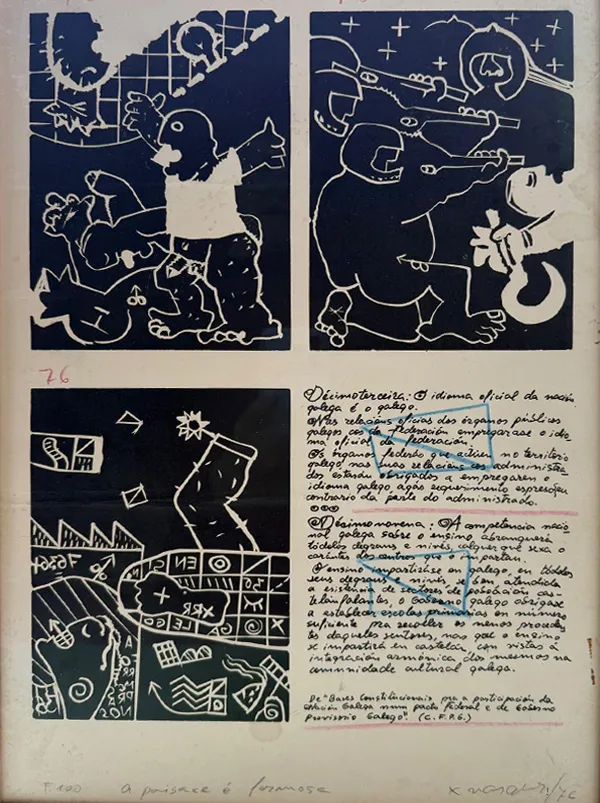 76
Décimoterceira: O idioma oficial da nación
galega é o galego.
Nas relaciós oficias dos órganos públicos
galegos cos da federación empregarase o idio-
ma oficial da federación.
Os órganos federás que actúen no territorio
galego nas suas relaciós cos administra-
dos estarán obrigados a empregaren o
idioma galego agás requerimento espreso en
contrario da parte do administrado.
Décimonovena: A competencia nacio-
nal galega sobre o ensino abranguerá
tódolos degraus e niveis, calquer que sexa o
carácter dos centros que o impartan.
O ensino impartirase en galego, en tódolos
seus degraus e niveis, se ben, atendida
a existencia de sectores de poboación cas-
telán falantes, o Goberno galego obrigase
a establecer escolas primarias en número
suficiente pra recoller os nenos proceden-
tes daqueles sectores, nas que o ensino
se impartirá en castelán, con vistas á
integración armónica dos mesmos na
comunidade cultural galega.
De "Bases Constitucionais pra a participación da
Nación Galega nun pacto federal e de Goberno
Provisorio Galego". (C.F.P.G.)
EN CI
XRR
GA LE GO
A COR
T. 100 a paisaxe é fermosa